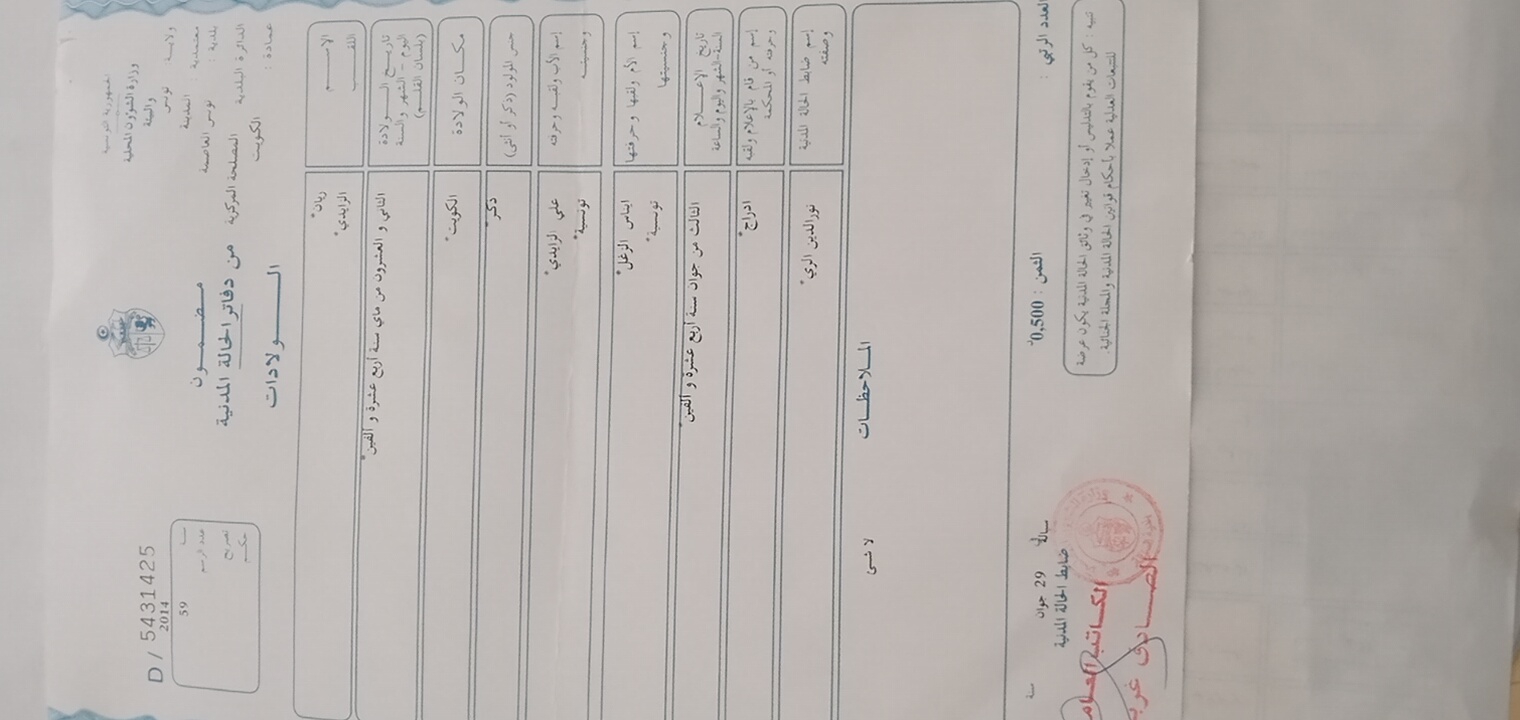 الجمهورية التونسية
وزارة الشؤون المحلية
والبيئة
ولاية : تونس
معتمدية : المدينة
بلدية : تونس العاصمة
الدائرة البلدية المصلحة المركزية
عمادة : الكويت
مضمون
من دفاتر الحالة المدنية
الولادات
D / 5431425
2014
سنة
59
عدد الرسم
تصريح
حكم
الاسم
ريان*
اللقب
الزايدي*
تاريخ الولادة
اليوم - الشهر والسنة
(بلسان القلم)
الثاني و العشرون من ماي سنة أربع عشرة و ألفين*
مكان الولادة
الكويت*
جنس المولود (ذكر أو أنثى)
ذكر*
إسم الأب ولقبه وحرفته
علي الزايدي*
وجنسيته
تونسية*
إسم الأم ولقبها وحرفتها
ايناس الزغل*
وجنسيتها
تونسية*
تاريخ الإعلام
السنة-الشهر واليوم والساعة
الثالث من جوان سنة أربع عشرة و ألفين*
إسم من قام بالإعلام ولقبه
وحرفته أو المحكمة
ادراج*
إسم ضابط الحالة المدنية
وصفته
نورالدين الري*
الملاحظات
لا شئ
العدد الرتبي :
الثمن : 0,500د
29 جوان
سنة
ضابط الحالة المدنية
تنبيه : كل من يقوم بالتدليس أو إدخال تغيير في وثائق الحالة المدنية يكون عرضة
للتتبعات العدلية عملا بأحكام قوانين الحالة المدنية والمجلة الجنائية.
الكاتب العام
الصادق